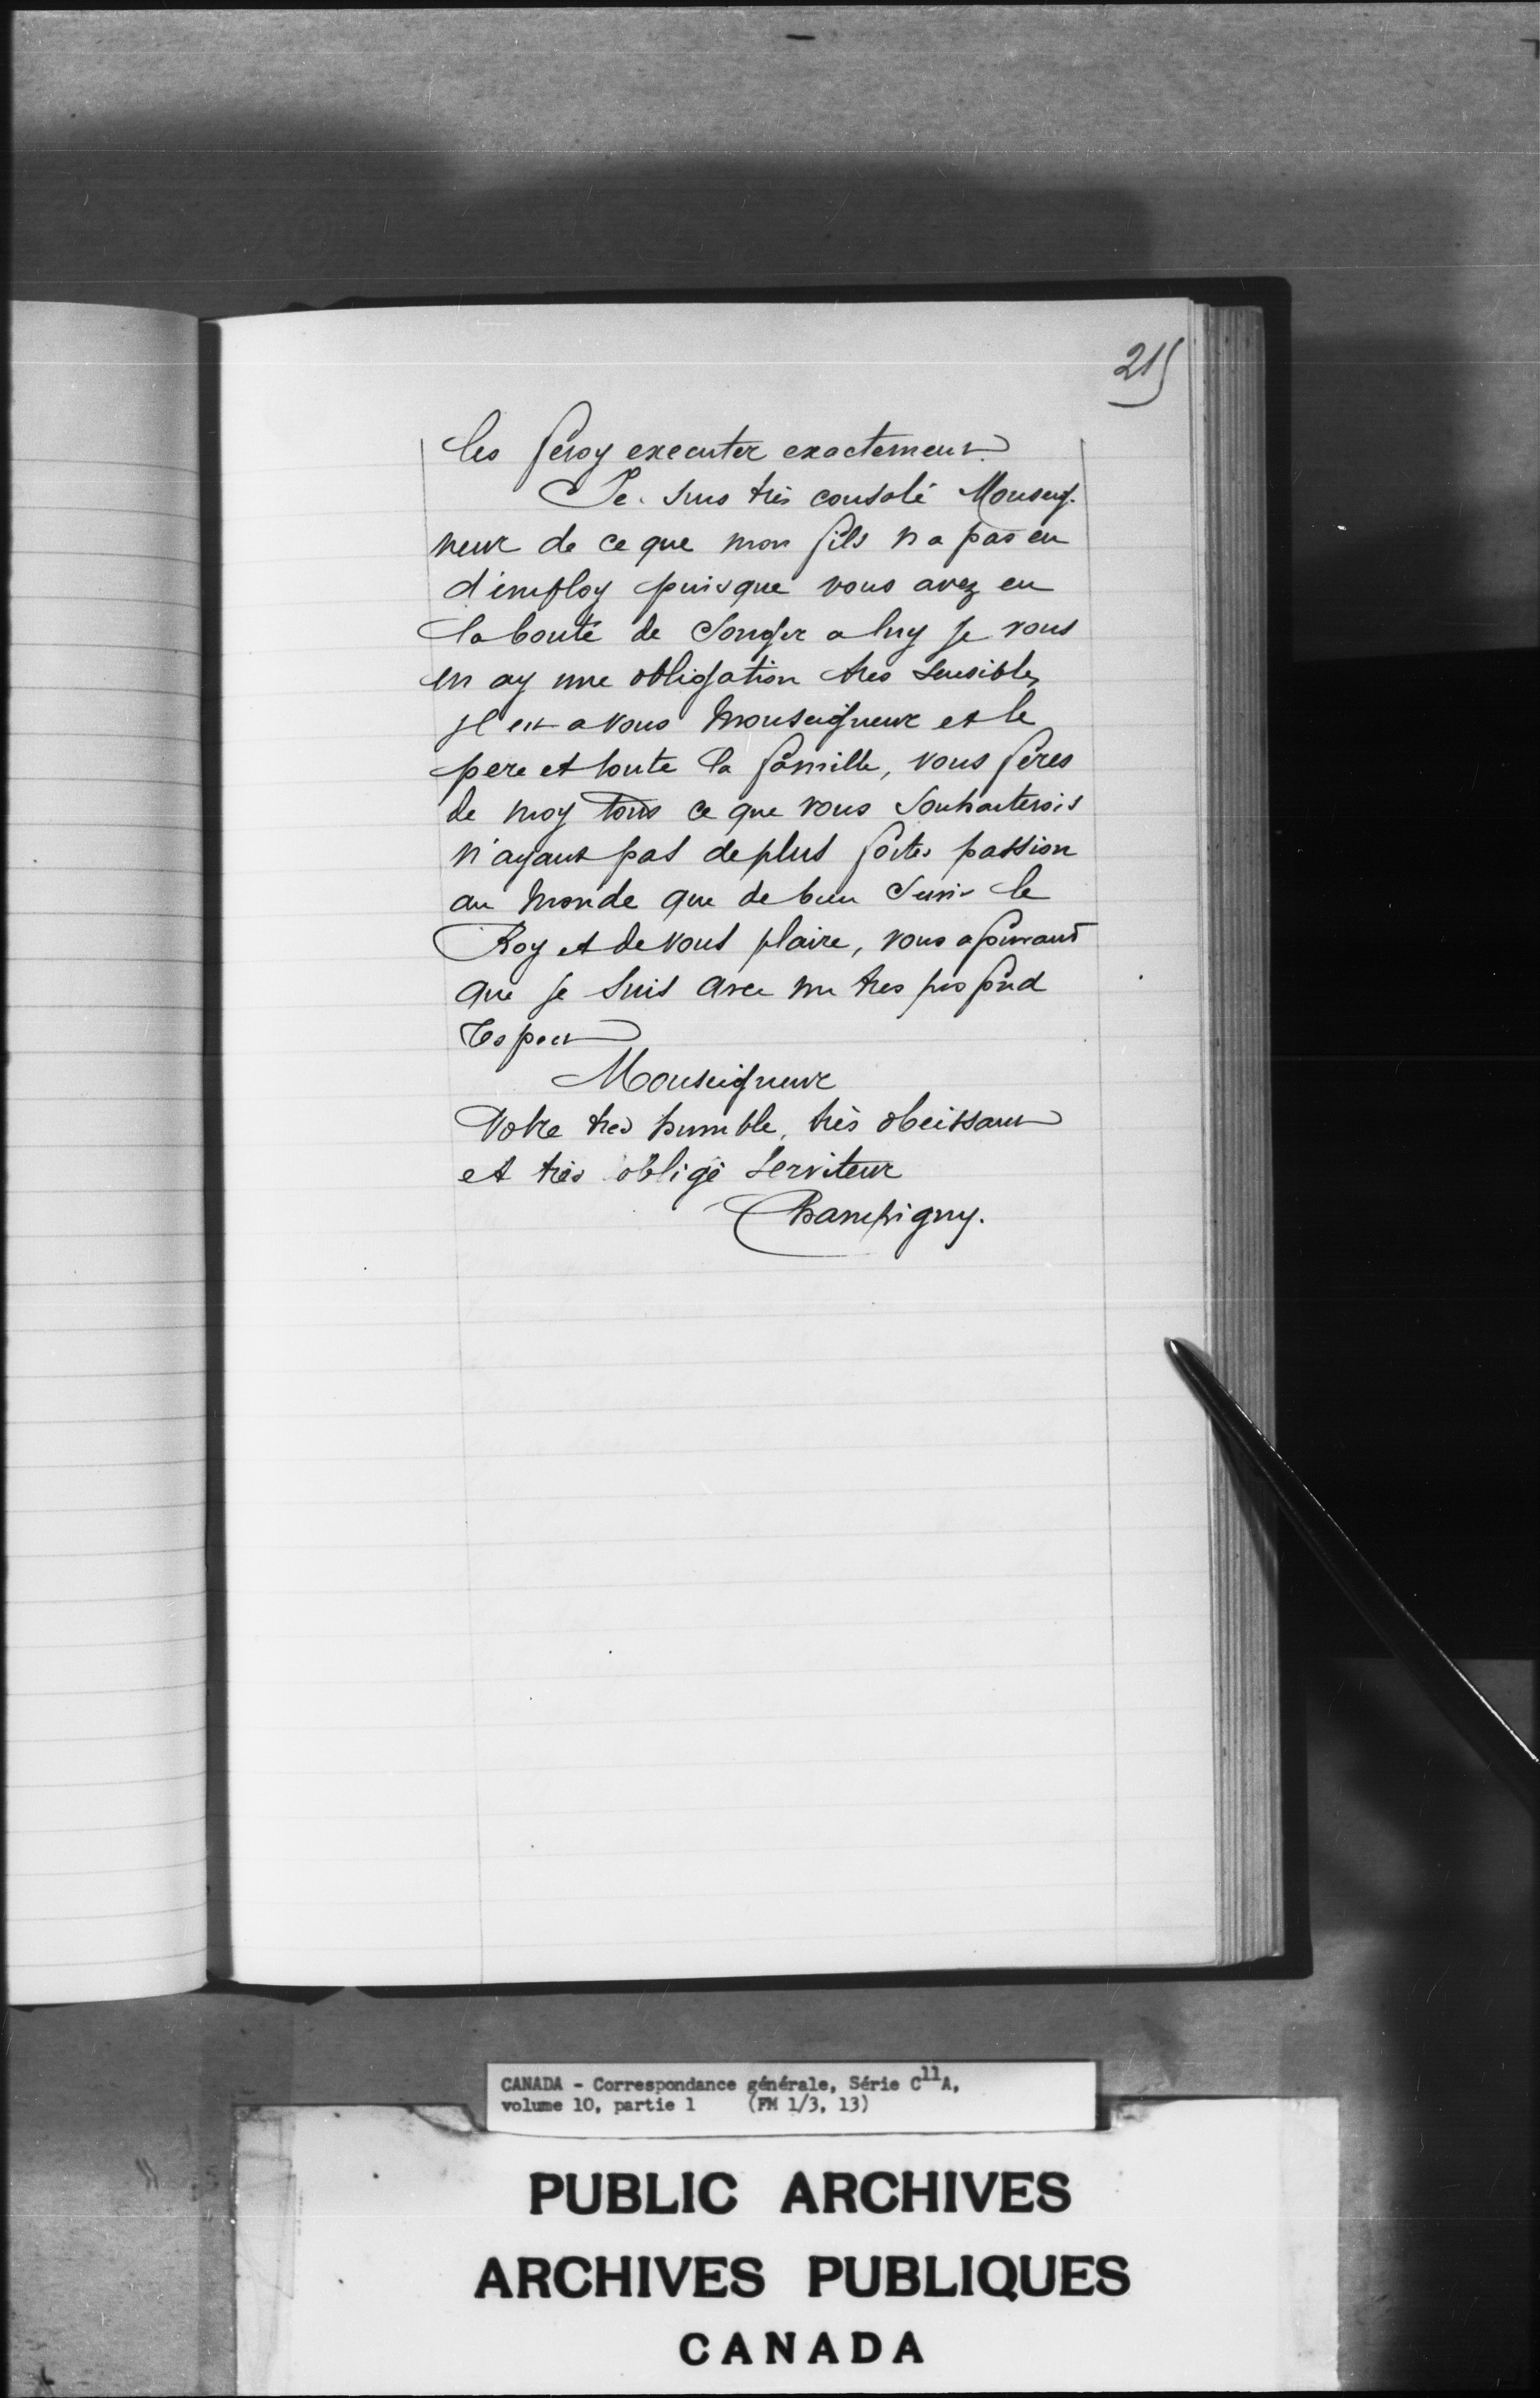 215
les feroy executer exactement.
Je suis très consolé Monseig-
neur de ce que mon fils n a pas eu
d'employ puisque vous avez eu
la bonté de Songer a luy je vous
en ay une obligation tres sensible,
il est a vous Monseigneur et le
pere et toute la famille, vous feres
de moy tous ce que vous Souhaiterois
n'ayant pas de plus fortes passion
au monde que de bien Servir le
Roy et de vous plaire, vous assurant
que je Suis avec un tres profond
respect
Monseigneur
Votre tres humble, très obeissant
et très obligé Serviteur
Champigny.
CANADA - Correspondance générale, Série C11A,
volume 10, partie 1 (FM 1/3, 13)
PUBLIC ARCHIVES
ARCHIVES PUBLIQUES
CANADA